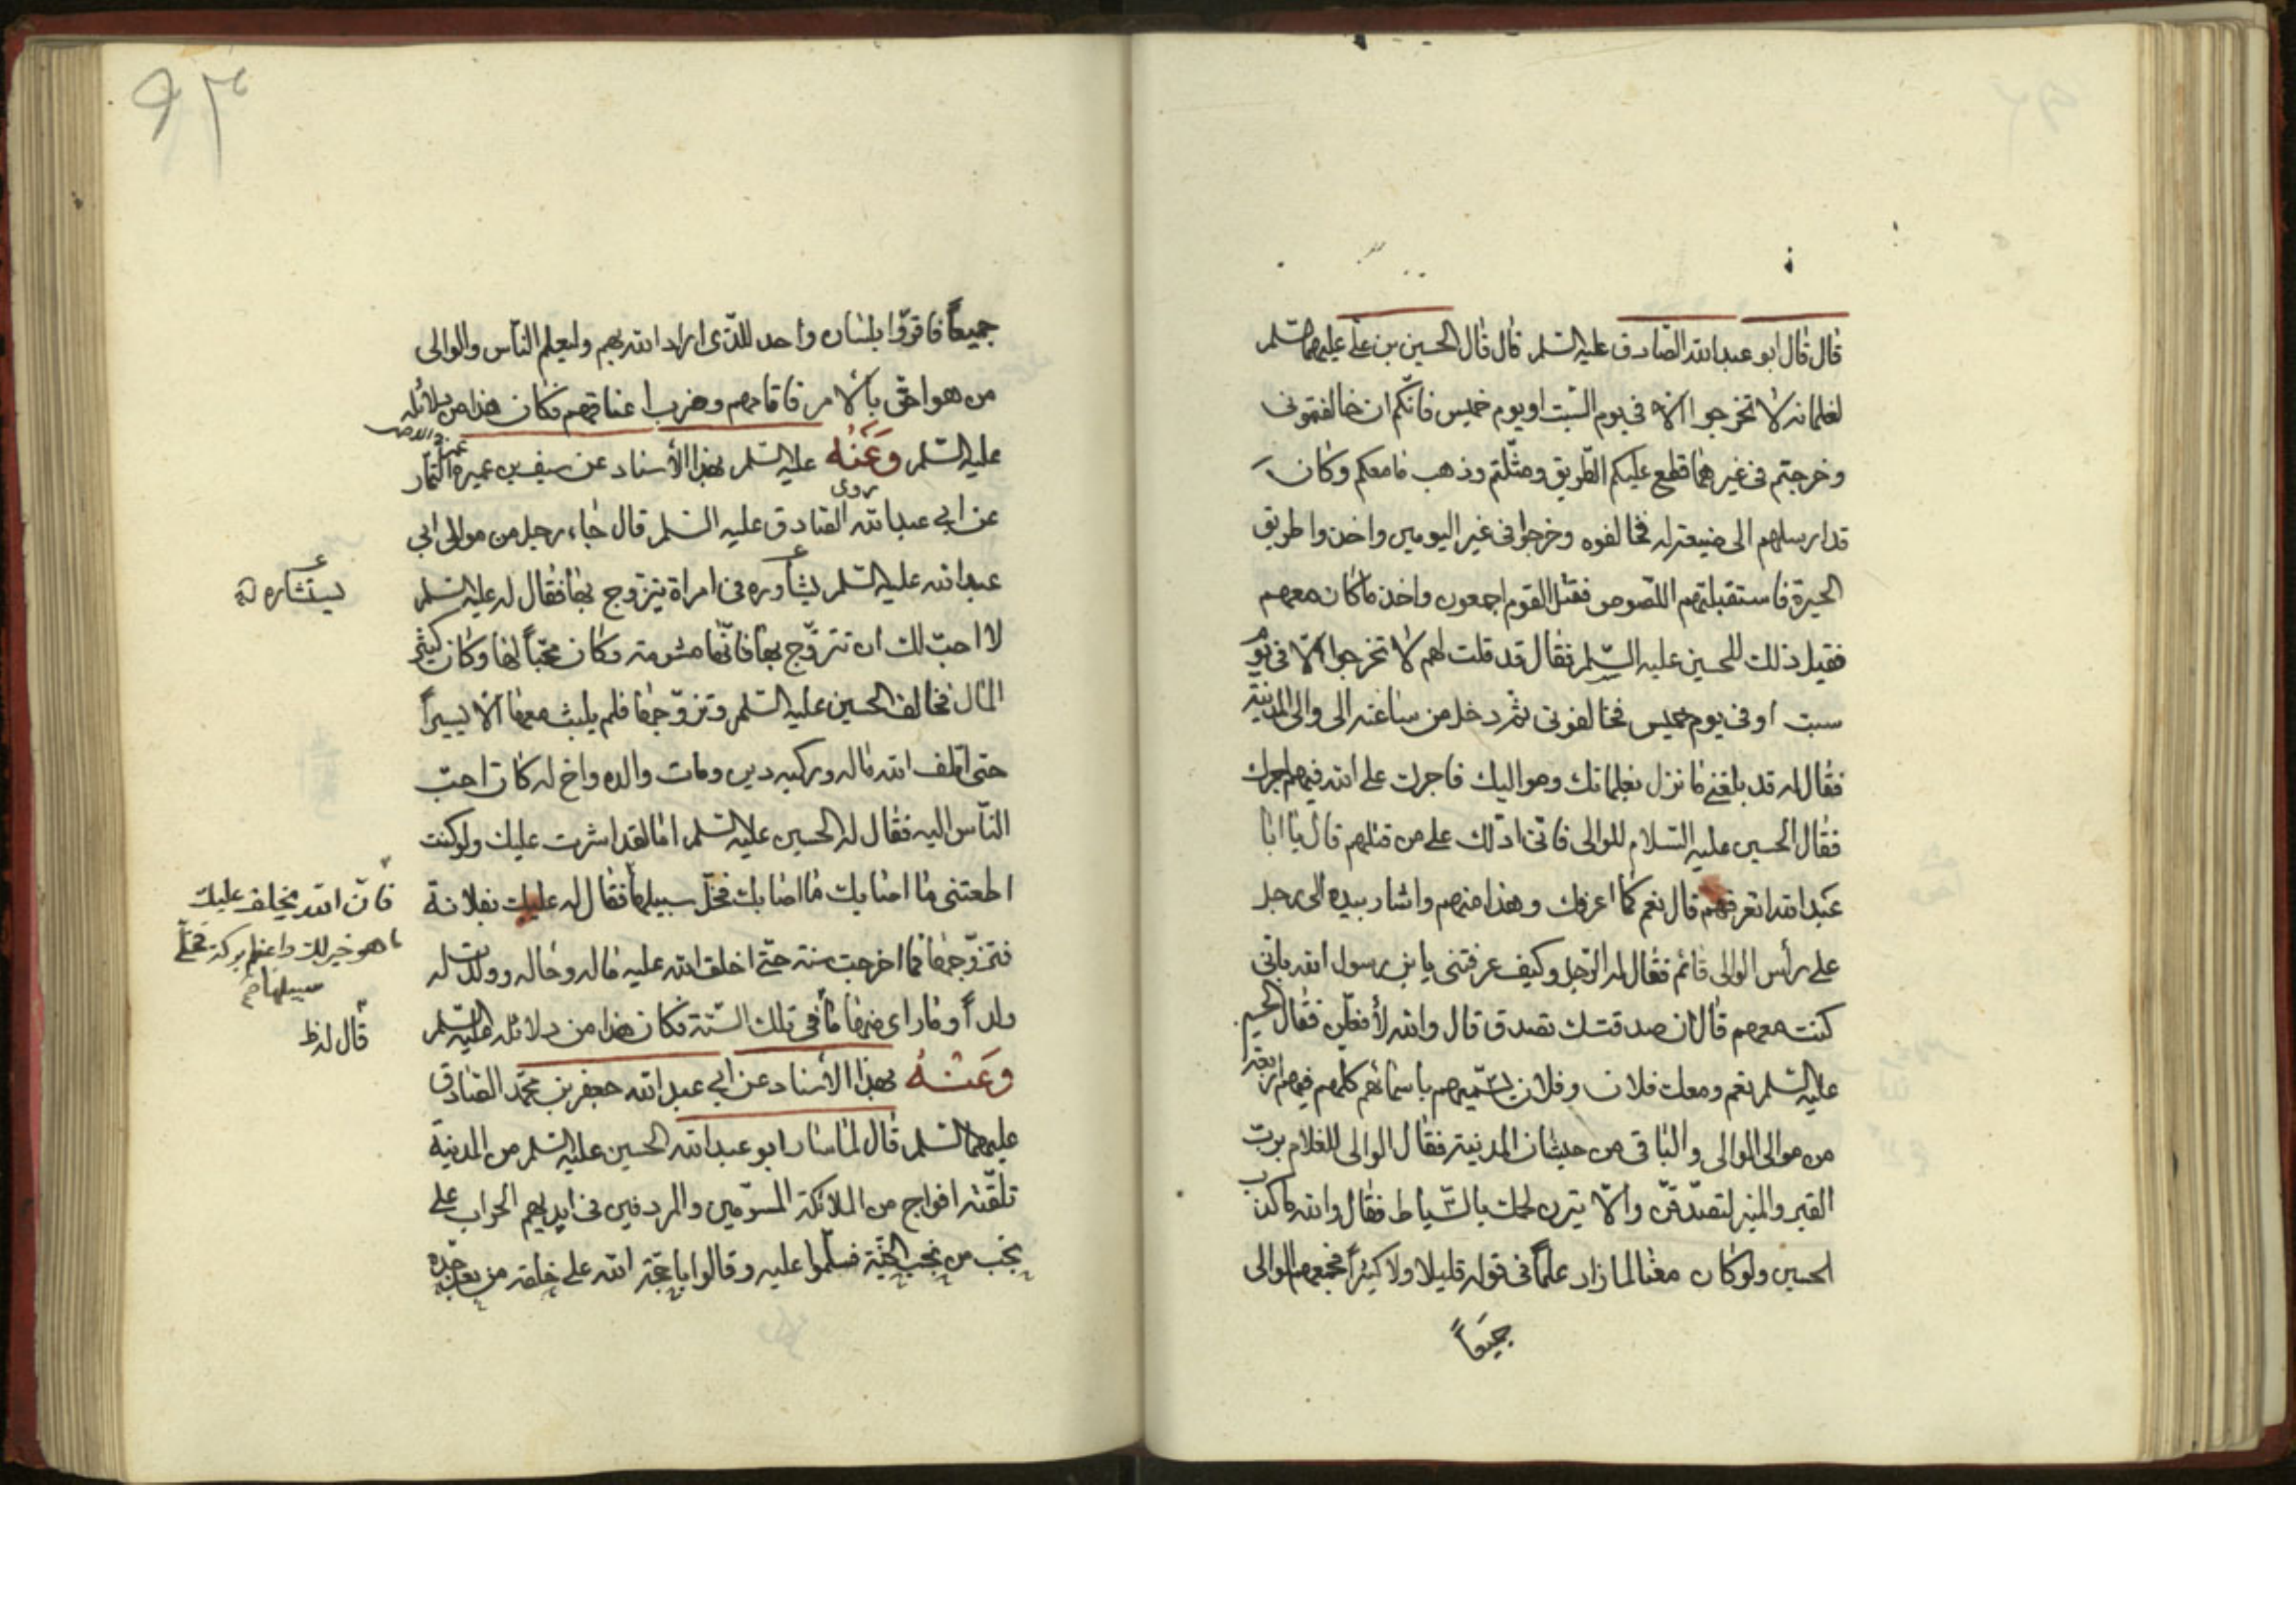 قال قال ابو عبدالله الصّادق عليه السّلم قال قال الحسين بن علي عليهما السّلم
لغلمانه لا تخرجوا الّا في يوم السّبت او يوم خميس فانّكم ان خالفتموني
وخرجتم في غيرهما قطع عليكم الطّريق وقتلتم وذهب ما معكم وكان
قد ارسلهم الى ضيعة له فخالفوه وخرجوا في غير اليومين واخذوا طريق
الحيرة فاستقبلتهم اللّصوص فقتل القوم اجمعون واخذ ما كان معهم
فقيل ذلك للحسين عليه السّلم فقال قد قلت لهم لا تخرجوا الّا في يوم
سبت او في يوم خميس فخالفوني ثمّ دخل من ساعته الى والى المدينة
فقال له قد بلغني ما نزل بغلمانك ومواليك فاجرك على الله فيهم اجرك
فقال الحسين عليه السّلام للوالى فانّى ادلّك على من قتلهم قال يا ابا
عبدالله اتعرفهم قال نعم كما اعرفك وهذا منهم واشار بيده الى رجل
على رأس الوالى قائم فقال له الرّجل وكيف عرفتني يا بن رسول الله بانّي
كنت معهم قال ان صدقتك تصدق قال والله لأفعلنّ فقال الحسين
عليه السّلم نعم ومعك فلان وفلان يسمّيهم باسمائهم كلّهم فيهم اربعة
من موالى الوالى والباقى من حبشان المدينة فقال الوالى للغلام بربّ
القبر والمنبر لتصدّقنّ والّا نثرن لحمك بالسّياط فقال والله ما كذب
الحسين ولو كان معنا لما زاد علماً في قوله قليلا ولا كثيراً فجمعهم الوالى
جميعاً
٩٣
جميعاً فاقرّوا بلسان واحد للّذى اراد الله بهم وليعلم النّاس والوالى
من هو احقّ بالامر فاقامهم وضرب اعناقهم فكان هذا من دلائله
عليه السّلم وعَنْهُ عليه السّلم بهذا الأسناد عن سيف بن عميرة التمّار
روى
عن ابي عبدالله الصّادق عليه السّلم قال جاء رجل من موالى ابي
عبدالله عليه السّلم يشاوره في امراة يتزوج بها فقال له عليه السّلم
يستشاره
لا احبّ لك ان تتزوّج بها فانّها مشومة وكان محبّاً لها وكان كثير
المال فخالف الحسين عليه السّلم وتزوّجها فلم يلبث معها الّا يسيراً
حتى اتلف الله ماله وركبه دين ومات والده واخ له كان احبّ
النّاس اليه فقال له الحسين عليه السّلم اما لقد اشرت عليك ولو كنت
اطعتنى ما اصابك ما اصابك فخلّ سبيلها فقال له عليك بفلانة
فانّ الله يخلف عليك
ما هو خير لك واعظم بركة فخلّى
سبيلها
فتزوّجها فما اخرجت سنة حتّى اخلف الله عليه ماله وحاله وولدت له
ولداً وما راى منها ما في تلك السّنة فكان هذا من دلائله عليه السّلم
قال له ظ
وَعَنْهُ بهذا الأسناد عن ابي عبدالله جعفر بن محمّد الصّادق
عليهما السّلم قال لما سار ابو عبدالله الحسين عليه السّلم من المدينة
تلقّته افواج من الملائكة المسوّمين والمردفين في ايديهم الحراب على
نجب من نجب الجنّة فسلّموا عليه وقالوا يا حجّة الله على خلقه من بعد جدّه